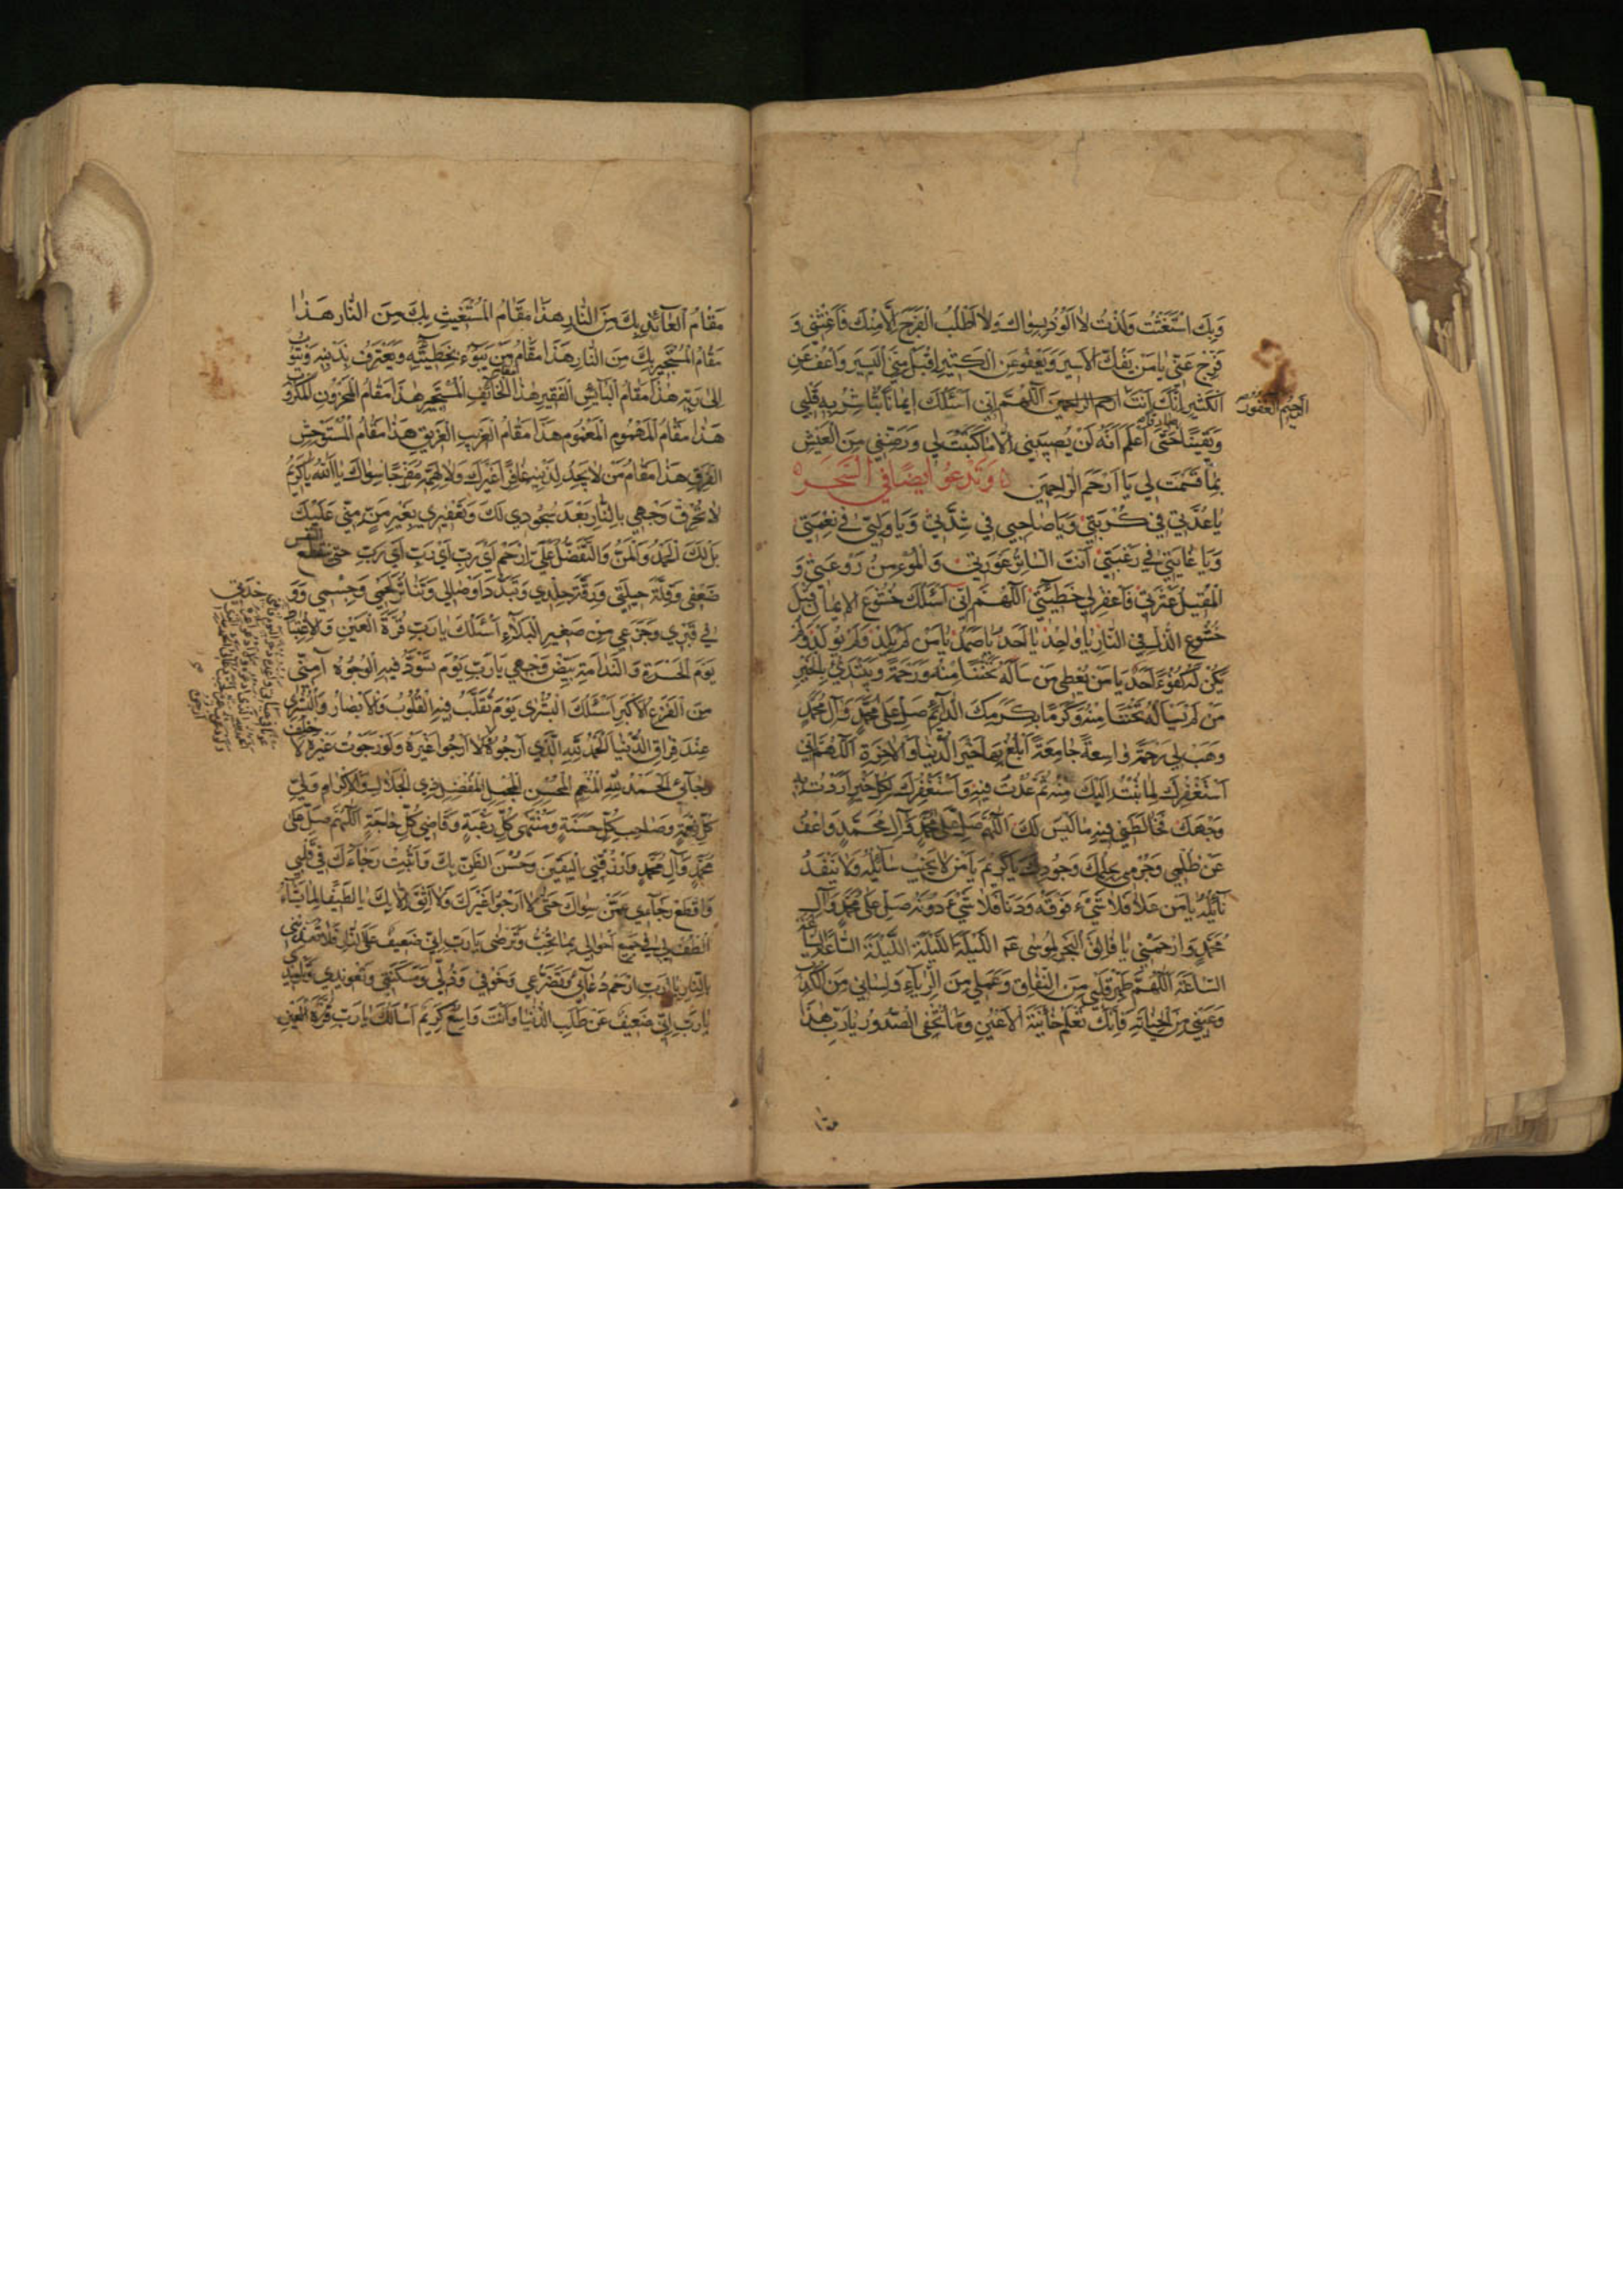 وَبِكَ اسْتَغَثْتُ وَلُذْتُ لا اَلُوذُ بِسِواكَ وَلا اَطْلُبُ الْفَرَجَ اِلّا مِنْكَ فَاَغِثْنِي وَ
فَرِّجْ عَنّي يا مَنْ يَفُكُّ الْاَسِيرَ وَيَعْفُو عَنِ الْكَثِيرِ اِقْبَلْ مِنِّي الْيَسِيرَ وَاعْفُ عَنِ
الْكَثِيرِ اِنَّكَ اَنْتَ ارحم الراحمين اَللّهُمَّ اِنّي اَسْئَلُكَ اِيمانًا تُباشِرُ بِهِ قَلْبِي
الرَّحِيمُ الْغَفُورُ
وَيَقِينًا حَتّى اَعْلَمَ اَنَّهُ لَنْ يُصِيبَنِي اِلّا ما كَتَبْتَ لِي وَرَضِّنِي مِنَ الْعَيْشِ
صادقا
بِما قَسَمْتَ لِي يَا اَرْحَمَ الرّاحِمِينَ وَتَدْعُو اَيْضًا فِي السَّحَرِ
يا عُدَّتِي فِي كُرْبَتِي وَيَا صاحِبِي فِي شِدَّتِي وَيَا وَلِيّي فِي نِعْمَتِي
وَيَا غايَتِي فِي رَغْبَتِي اَنْتَ السّاتِرُ عَوْرَتِي وَالْمُؤْمِنُ رَوْعَتِي وَ
الْمُقِيلُ عَثْرَتِي فَاغْفِرْ لِي خَطِيئَتِي اَللّهُمَّ اِنّي اَسْئَلُكَ خُشُوعَ الْاِيمانِ قَبْلَ
خُشُوعِ الذُّلِّ فِي النّارِ يا واحِدُ يا اَحَدُ يا صَمَدُ يا مَنْ لَمْ يَلِدْ وَلَمْ يُولَدْ وَلَمْ
يَكُنْ لَهُ كُفُوًا اَحَدٌ يَا مَنْ يُعْطِي مَنْ سَاَلَهُ تَحَنُّنًا مِنْهُ وَرَحْمَةً وَيَبْتَدِئُ بِالْخَيْرِ
مَنْ لَمْ يَسْأَلْهُ تَحَنُّنًا مِنْهُ وَكَرَمًا بِكَرَمِكَ الدّائِمِ صَلِّ عَلى مُحَمَّدٍ وَآلِ مُحَمَّدٍ
وَهَبْ لِي رَحْمَةً واسِعَةً جامِعَةً اَبْلُغُ بِها خَيْرَ الدُّنْيا وَالْاخِرَةِ اَللّهُمَّ اِنّي
اَسْتَغْفِرُكَ لِما تُبْتُ اِلَيْكَ مِنْهُ ثُمَّ عُدْتُ فِيهِ وَاَسْتَغْفِرُكَ لِكُلِّ خَيْرٍ اَرَدْتُ بِهِ
وَجْهَكَ فَخالَطَنِي فِيهِ ما لَيْسَ لَكَ اَللّهُمَّ صَلِّ عَلى مُحَمَّدٍ وَآلِ مُحَمَّدٍ وَاعْفُ
عَنْ ظُلْمِي وَجُرْمِي بِحِلْمِكَ وَجُودِكَ يَا كَرِيمُ يَا مَنْ لا يَخِيبُ سائِلُهُ وَلا يَنْفَدُ
نائِلُهُ يا مَنْ عَلا فَلا شَيْءَ فَوْقَهُ وَدَنا فَلا شَيْءَ دُونَهُ صَلِّ عَلى مُحَمَّدٍ وَآلِ
مُحَمَّدٍ وَارْحَمْنِي يا فالِقَ الْبَحْرِ لِمُوسى عم اللَّيْلَةَ اللَّيْلَةَ اللَّيْلَةَ السّاعَةَ السّاعَةَ
السّاعَةَ اَللّهُمَّ طَهِّرْ قَلْبِي مِنَ النِّفاقِ وَعَمَلِي مِنَ الرِّياءِ وَلِسانِي مِنَ الْكَذِبِ
وَعَيْنِي مِنَ الْخِيانَةِ فَاِنَّكَ تَعْلَمُ خائِنَةَ الْاَعْيُنِ وَما تُخْفِي الصُّدُورُ يا رَبِّ هذا
مَقامُ الْعائِذِ بِكَ مِنَ النّارِ هذا مَقامُ الْمُسْتَغِيثِ بِكَ مِنَ النّارِ هذا
مَقامُ الْمُسْتَجِيرِ بِكَ مِنَ النّارِ هذا مَقامُ مَنْ يَبُوءُ بِخَطِيئَتِهِ وَيَعْتَرِفُ بِذَنْبِهِ وَيَتُوبُ
اِلى رَبِّهِ هذا مَقامُ الْبائِسِ الْفَقِيرِ هذا مقام الْخائِفِ الْمُسْتَجِيرِ هذا مَقامُ الْمَحْزُونِ الْمَكْرُوبِ
هذا مَقامُ الْمَهْمُومِ الْمَغْمُومِ هذا مَقامُ الْغَرِيبِ الْغَرِيقِ هذا مَقامُ الْمُسْتَوْحِشِ
الْفَرِقِ هذا مَقامُ مَنْ لا يَجِدُ لِذَنْبِهِ غافِرًا غَيْرَكَ وَلا لِهَمِّهِ مُفَرِّجًا سِواكَ يا اَللهُ يا كَرِيمُ
لا تُحْرِقْ وَجْهِي بِالنّارِ بَعْدَ سُجُودِي لَكَ وَتَعْفِيرِي بِغَيْرِ مَنٍّ مِنّي عَلَيْكَ
بَلْ لَكَ الْحَمْدُ وَالْمَنُّ وَالتَّفَضُّلُ عَلَيَّ اِرْحَمْ اَيْ رَبِّ اَيْ رَبِّ اَيْ رَبِّ حَتّى ينقطع النفس
ضَعْفِي وَقِلَّةَ حِيلَتِي وَرِقَّةَ جِلْدِي وَتَبَدُّدَ اَوْصالِي وَتَناثُرَ لَحْمِي وَجِسْمِي وَوَحْدَتِي
فِي قَبْرِي وَجَزَعِي مِنْ صَغِيرِ الْبَلاءِ اَسْئَلُكَ يا رَبِّ قُرَّةَ الْعَيْنِ وَالْاِغْتِباطَ
يَوْمَ الْحَسْرَةِ وَالنَّدامَةِ بَيِّضْ وَجْهِي يَا رَبِّ يَوْمَ تَسْوَدُّ فِيهِ الْوُجُوهُ آمِنّي
مِنَ الْفَزَعِ الْاَكْبَرِ اَسْئَلُكَ الْبُشْرى يَوْمَ تُقَلَّبُ فِيهِ الْقُلُوبُ وَالْاَبْصارُ وَالْبُشْرى
عِنْدَ فِراقِ الدُّنْيا اَلْحَمْدُ لِلّهِ الَّذِي اَرْجُوهُ لا اَرْجُو غَيْرَهُ وَلَوْ رَجَوْتُ غَيْرَهُ لاَخْلَفَ
رَجائِي اَلْحَمْدُ لِلّهِ الْمُنْعِمِ الْمُحْسِنِ الْمُجْمِلِ الْمُفْضِلِ ذِي الْجَلالِ وَالْاِكْرامِ وَلِيِّ
كُلِّ نِعْمَةٍ وَصاحِبِ كُلِّ حَسَنَةٍ وَمُنْتَهى كُلِّ رَغْبَةٍ وَقاضِي كُلِّ حاجَةٍ اَللّهُمَّ صَلِّ عَلى
مُحَمَّدٍ وَآلِ مُحَمَّدٍ وَارْزُقْنِي الْيَقِينَ وَحُسْنَ الظَّنِّ بِكَ وَاَثْبِتْ رَجاءَكَ فِي قَلْبِي
وَاقْطَعْ رَجائِي عَمَّنْ سِواكَ حَتّى لا اَرْجُوَ غَيْرَكَ وَلا اَثِقَ اِلّا بِكَ يا لَطِيفًا لِما يَشاءُ
اُلْطُفْ لِي فِي جَمِيعِ اَحْوالِي بِما تُحِبُّ وَتَرْضى يا رَبِّ اِنّي ضَعِيفٌ عَلَى النّارِ فَلا تُعَذِّبْنِي
بِالنّارِ يا رَبِّ ارْحَمْ دُعائِي وَتَضَرُّعِي وَخَوْفِي وَذُلّي وَمَسْكَنَتِي وَتَعْوِيذِي وَتَلْوِيذِي
يا رَبِّ اِنّي ضَعِيفٌ عَنْ طَلَبِ الدُّنْيا وَاَنْتَ واسِعٌ كَرِيمٌ اَسْاَلُكَ يا رَبِّ قُرَّةَ الْعَيْنِ